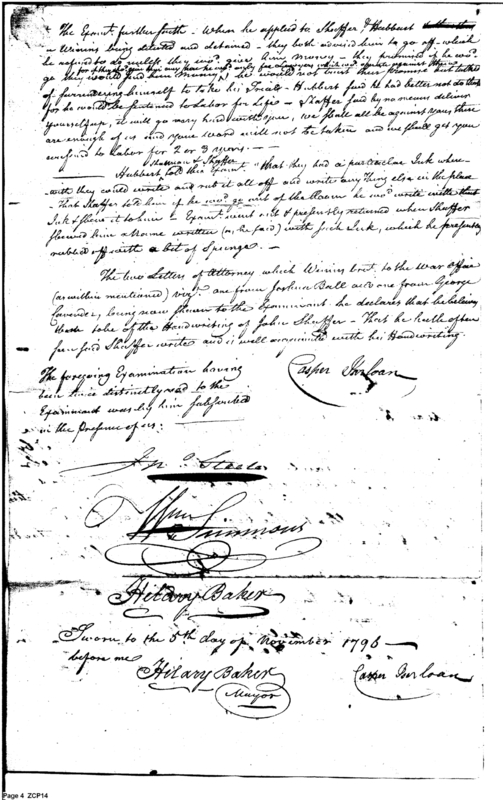 The Examt. further saith - When he applied to Shaffer & Hubbert
- Winins being detected and detained - they both advised him to go off - which
he refused to do unless they wod. give him Money - they promised if he wod.
go they would send him Money, he would not trust their promise but talked
of surrendering himself to take his Trial - Hubbert said he had better not do that
for he would be sentenced to Labor for Life - Shaffer said by no means deliver
yourself up, it will go very hard with you, we shall all be against you, there
are enough of us and your word will not be taken and we shall get you
confined to Labor for 2 or 3 years. -
Hubbert told this Examt. that they had a particular Ink where-
with they could write and rub it all off and write any thing else in the place
- That Shaffer told him if he wod. go out of the Room he wod. write with that
Ink & shew it to him - Examt. went out & presently returned when Shaffer
shewed him a Name written (as he said) with such Ink, which he presently
rubbed off with a bit of Spunge. -
The two Letters of Attorney which Winins brot. to the War Office
(as within mentioned) vizt. one from Joshua Ball and one from George
Lavender, being now shewn to the Examinant he declares that he believes
them to be of the Handwriting of John Shaffer - That he hath often
seen said Shaffer write and is well acquainted with his Handwriting.
The foregoing Examination having
been twice distinctly read to the
Examinant was by him subscribed
in the Presence of us:
Casper Iserloan
Jno. Steele
Wm Simmons
Hilary Baker
Sworn to the 5th day of November 1796 -
before me
Hilary Baker
Mayor
Casper Iserloan
Page 4 ZCP14